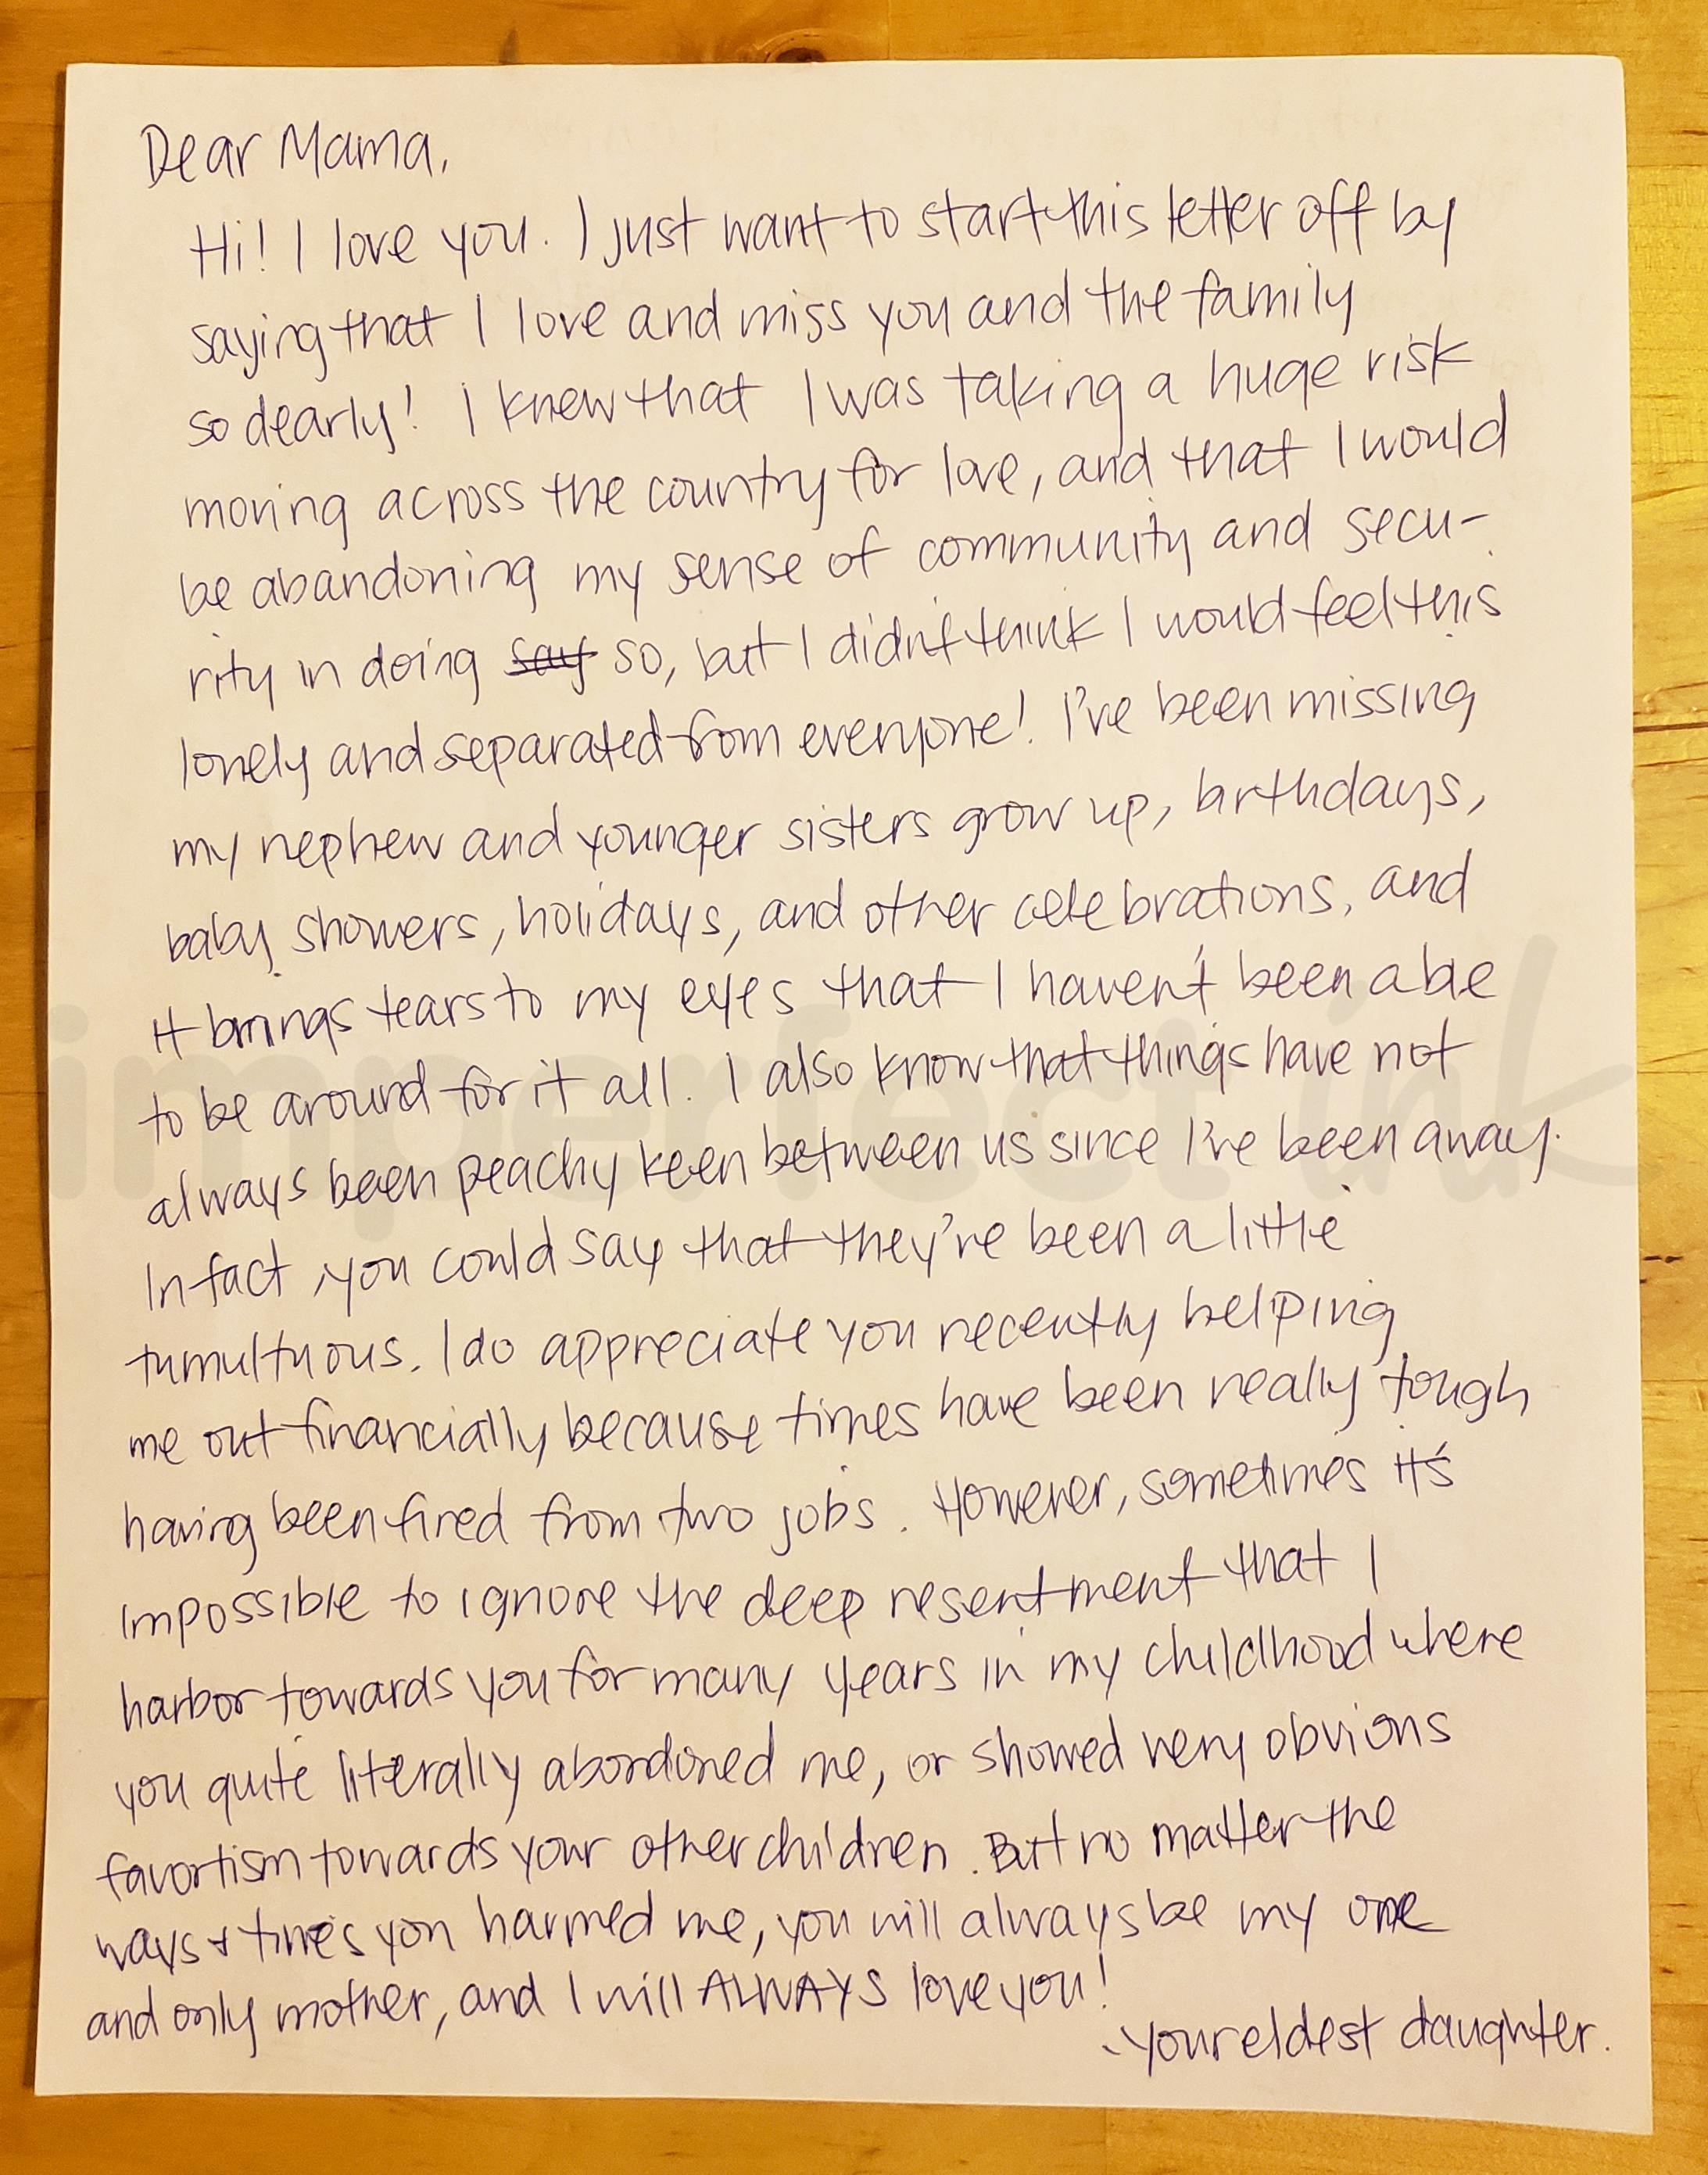 Dear Mama,
Hi! I love you. I just want to start this letter off by
saying that I love and miss you and the family
so dearly! I knew that I was taking a huge risk
moving across the country for love, and that I would
be abandoning my sense of community and secu-
rity in doing say so, but I didn't think I would feel this
lonely and separated from everyone! I've been missing
my nephew and younger sisters grow up, birthdays,
baby showers, holidays, and other celebrations, and
it brings tears to my eyes that I haven't been able
to be around for it all. I also know that things have not
always been peachy keen between us since I've been away.
In fact, you could say that they're been a little
tumultuous. I do appreciate you recently helping
me out financially because times have been really tough
having been fired from two jobs. However, sometimes it's
impossible to ignore the deep resentment that I
harbor towards you for many years in my childhood where
you quite literally abondoned me, or showed very obvious
favortism towards your other children. But no matter the
ways + times you harmed me, you will always be my one
and only mother, and I will ALWAYS love you!
- your eldest daughter.
imperfect ink